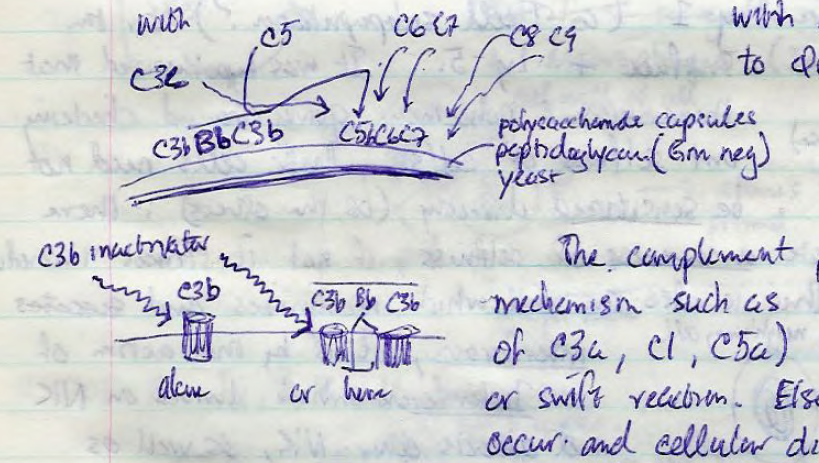 with
C5
C6 C7
C8 C9
with
to
C3b
C3b Bb C3b
C5b C6 C7
polysaccharide capsules
peptidoglycan (Gm neg)
yeast
C3b inactivator
C3b
C3b Bb C3b
alone
or here
The complement
mechanism such as
of C3a, C1, C5a)
or swift reaction. Else
occur. and cellular